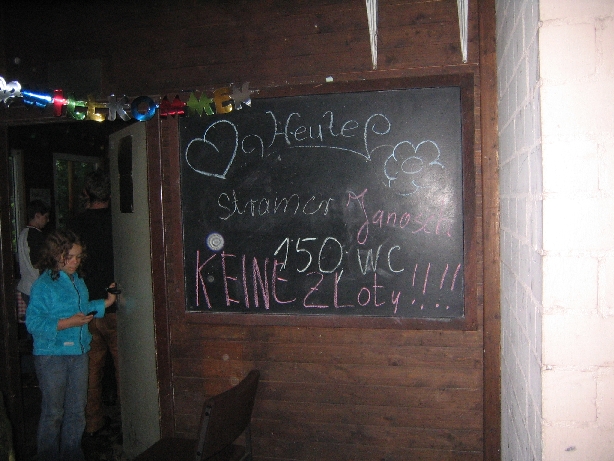 WILLKOMMEN
Heute
stramer Janosch
150 WC
KEINE ZLoty!!!!